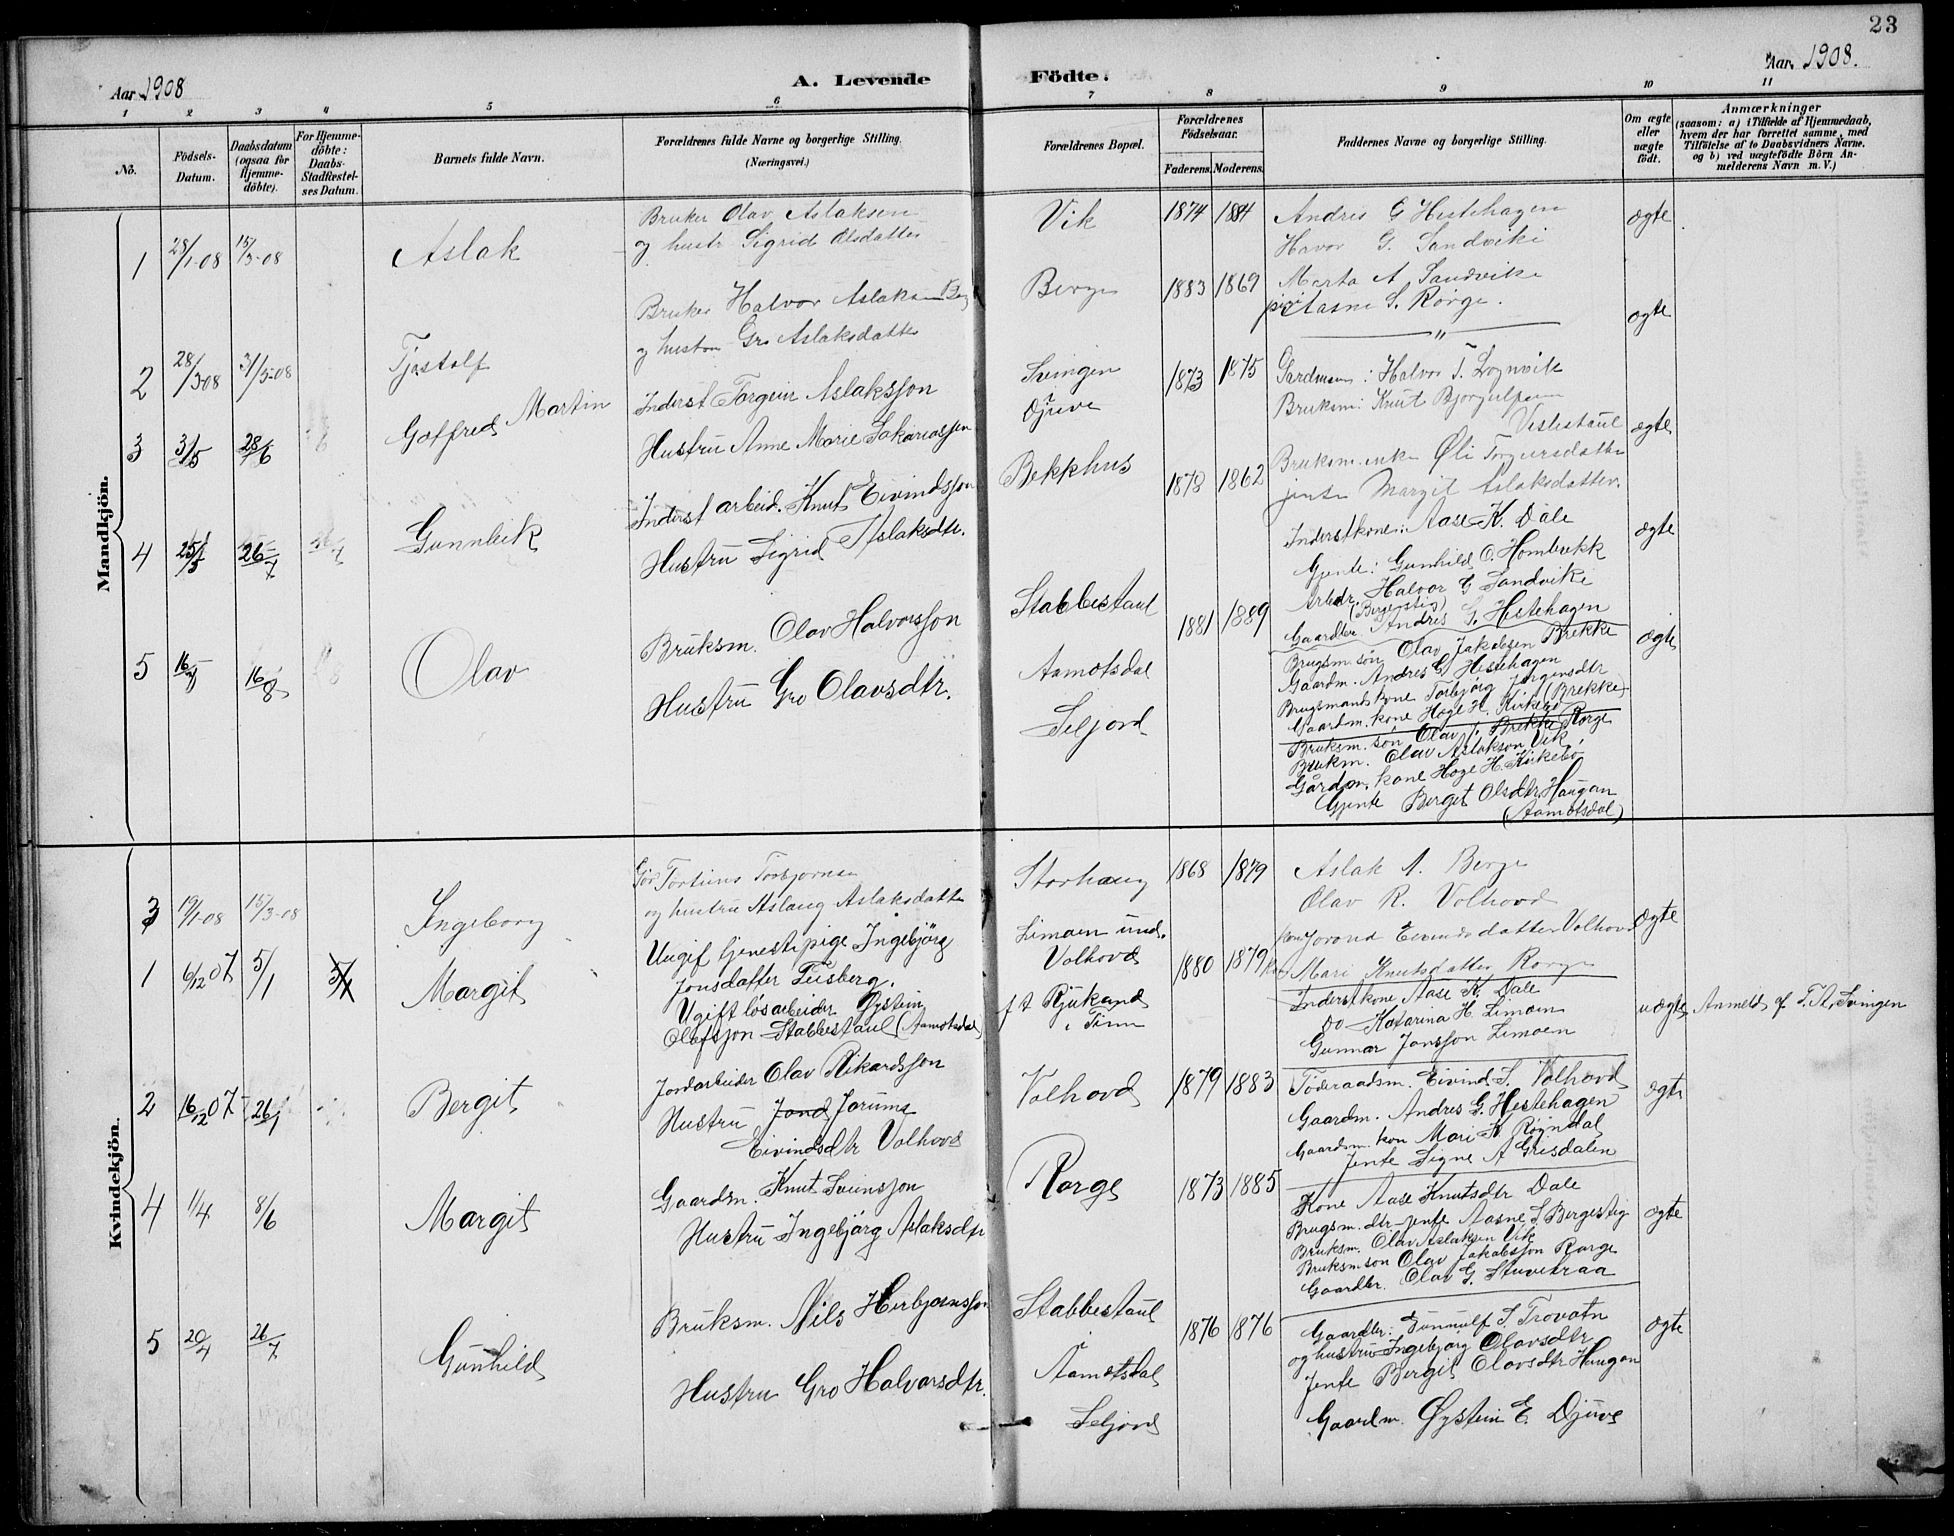 23
Aar 1908
A. Levende Födte.
Aar 1908.
1 2 3 4 5 6 7 8 9 10 11
No.
Födsels-Datum.
Daabsdatum (ogsaa for Hjemme-döbte).
For Hjemme-döbte: Daabs-Stadfestel-ses Datum.
Barnets fulde Navn.
Forældrenes fulde Navne og borgerlige Stilling.
(Næringsvei.)
Forældrenes Bopæl.
Forældrenes Födselsaar.
Faderens. Moderens.
Faddernes Navne og borgerlige Stilling.
Om ægte eller uægte födt.
Anmærkninger
(saasom: a) i Tilfælde af Hjemmedaab, hvem der har forrettet samme, med Tilföielse af to Daabsvidners Navne. og b) ved uægtefödte Börn Anmelderens Navn m. V.)
Mandkjön.
1 28/1-08 15/3-08 Aslak
Bruker Olav Aslaksen
og hustr Sigrid Olsdatter
Vik 1874 1884
Andres G Hestehagen
Havor G. Sandviki
Marta A Sandvike
Aasne S. Rorge.
ægte
2 28/3-08 31/5-08 Tjostolf
Bruker Halvor Aslaksen
og hustru Gro Aslaksdatter
Berge 1883 1869
"
ægte
3 3/5 28/6 Goffred Martin
Inderst Torgeir Aslaksson
Hustru Anne Marie Sakariassen
Svingen
Djuve
1873 1875
Gardmann: Halvor T. Lognvik
Bruksm: Knut Bjorgulfsen
Vistestaul
Bruksm. enke Öli Torgersdatter
jente Margit Aslaksdatter.
ægte
4 25/5 26/7 Gunleik
Inderst arbeid. Knut Eivindsson
Hustru Sigrid Aslaksdtr.
Bekkhus 1878 1862
Inderstkone: Aase K. Dale
Gjente: Gunhild O. Hombekk
Arbdr. Halvor G Sandviki
(Bergestig)
Gaardbr. Andres G. Hestehagen
ægte
5 16/8 Olav
Bruksm. Olav Halvorsson
Hustru Gro Olavsdtr.
Stabbestaul
Aamotsdal
Seljord
1881 1889
Brugsm. søn Olav Jakobsen Brekke
Gaardm. Andres G. Hestehagen
Brugsmands kone Torbjørg Jørgensdtr
Gaardm. kone Hoge H. Kirkebø (Brekke)
Bruksm. søn Olav J. Brekke Rorge
Brukm. Olav Aslakson Vik
Gårdm. kone Hoge H. Kirkebø
Gjente Berget Olsdtr Haugan
(Aamotsdal)
ægte
Kvindekjön.
3 19/1-08 15/3-08 Ingeborg
Torbjornsen
og hustru Aslaug Aslaksdatter
Storhaug 1868 1879
Aslak A. Berge
Olav R. Volhovd
Jorond Eivindsdatter Volhovd
Mari Knutsdatter Rorge
ægte
1 6/12 07 5/1 Margit
Ungif tjenestepige Ingebjörg
Jonsdatter Teisberg.
Ugift løsarbeider Øystein
Olafsson Stabbestaul (Aamotsdal)
Limoen und.
Volhovd
f t Rjukand
i Tinn
1880 1879
Inderstkone Aase K. Dale
Do Katarina H. Limoen
Gunnar Jonsson Limoen
uægte
Anmeld af T. A. Svingen
2 16/12 07 26/1 Bergit
Jordarbeider Olav Rikardsson
Hustru Jond Joruna
Eivindsdtr Volhovd
Volhovd 1879 1883
Föderaadsm. Eivind S. Volhovd
Gaardm. Andres G. Hestehagen
Gaardm. kon Mari K Rogndal
Jente Signe A Grisdalen
ægte
4 1/4 8/6 Margit
Gaardm. Knut Sveinsson
Hustru Ingebjörg Aslaksdtr
Rorge 1873 1885
Kone Aase Knutsdtr Dale
Brugsm. dtr-Jente Aasne S Bergestig
Bruksm. Olav Aslaksen Vik
Bruksm son Olav Jakobsson Rorge
Gaardbr. Olav G. Stuvetraa
ægte
5 20/4 26/7 Gunhild
Bruksm. Nils Herbjørnsson
Hustru Gro Halvorsdtr.
Stabbestaul
Aamotsdal
Seljord
1876 1876
Gaardbr: Gunnulf S. Trovatn
og hustru Ingebjörg Olavsdtr
Jente Bergit Olavsdtr Haugan
Gaardm. Øystein E. Djuve
ægte